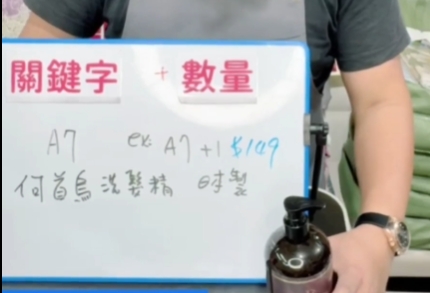 關鍵字 + 數量
A7 ex: A7+1 $149
何首烏洗髮精 日本製